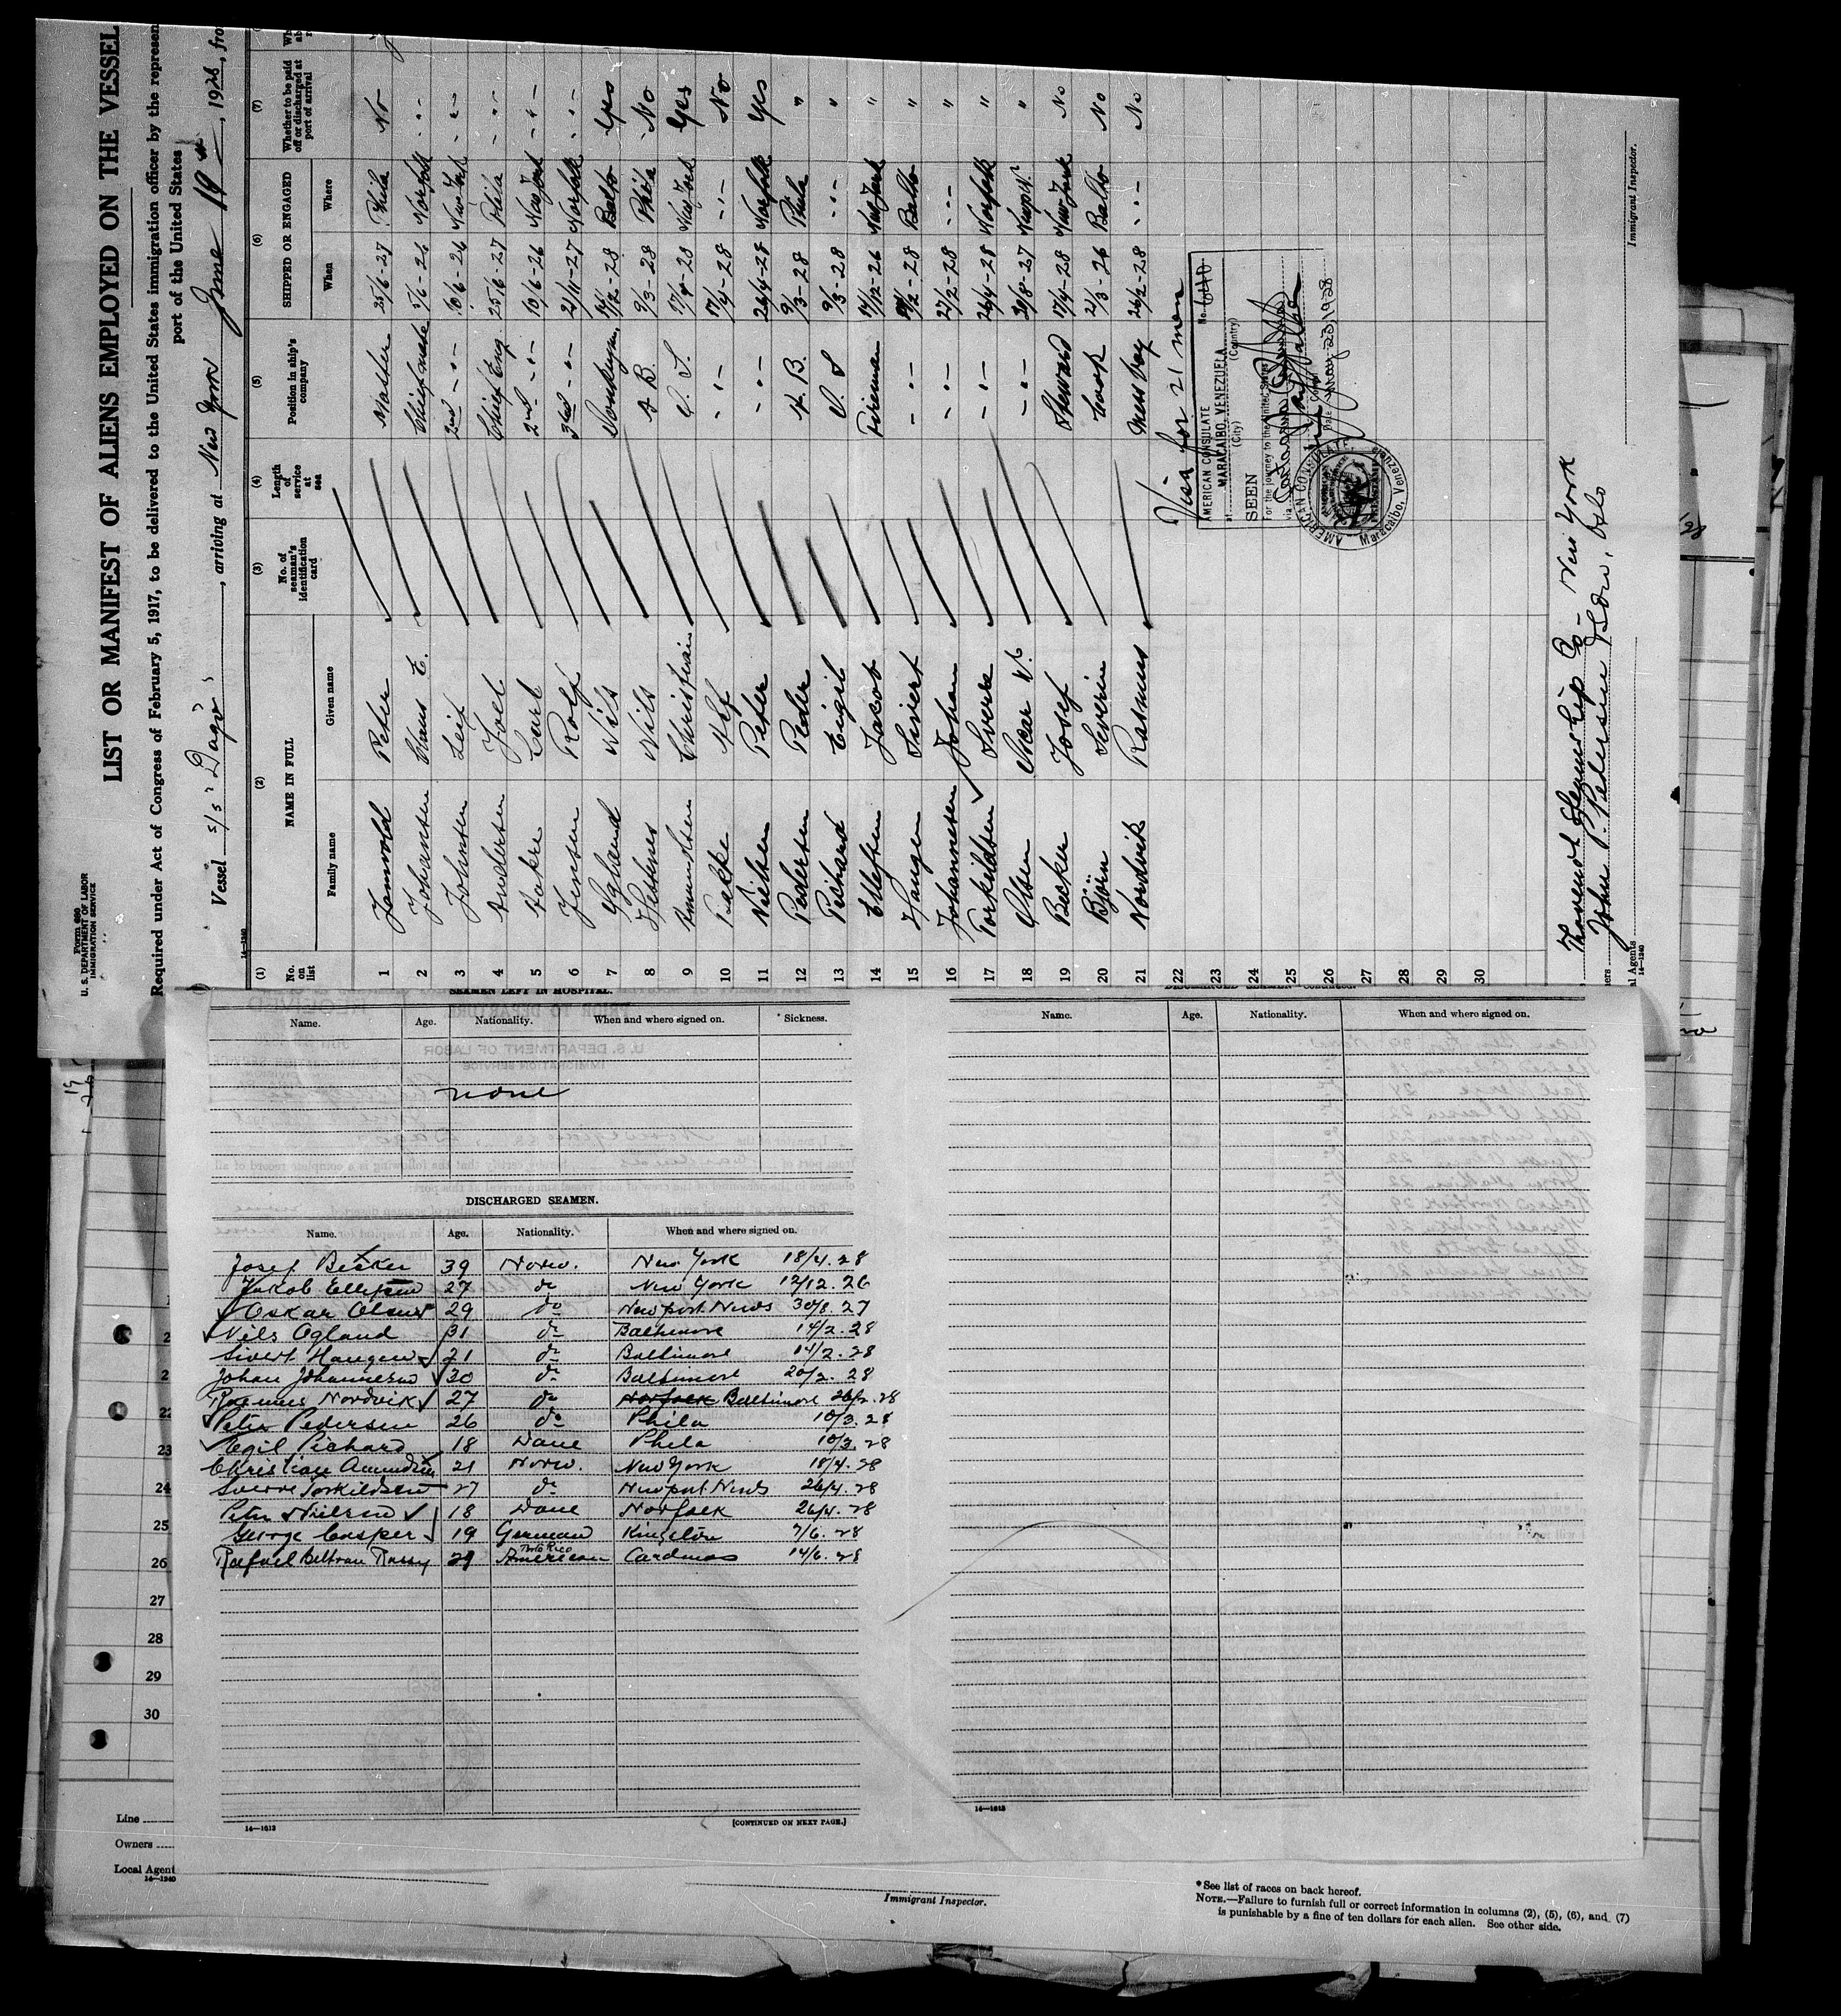 Form 680
U. S. DEPARTMENT OF LABOR
IMMIGRATION SERVICE
LIST OR MANIFEST OF ALIENS EMPLOYED ON THE VESSEL
Required under Act of Congress of February 5, 1917, to be delivered to the United States immigration officer by the represen
port of the United States
Vessel S/S "Dagó", arriving at New York June 19th, 1928, fro
14—1240
(1) (2) (3) (4) (5) (6) (7)
No. on list
NAME IN FULL
Family name Given name
No. of seaman's identification card
Length of service at sea
Position in ship's company
SHIPPED OR ENGAGED
When Where
Whether to be paid off or discharged at port of arrival
1 Peter Master 25/6-27 Phila No
2 Johansen Hans E. Chief mate 5/6-26 Norfolk -"-
3 Johnsen Leif 2nd -"- 10/6-26 New York -"-
4 Andersen Joel Chief Eng. 25/6-27 Phila -"-
5 Aakre Carl 2nd -"- 10/6-26 New York -"-
6 Jensen Rolf 3rd -"- 21/11-27 Norfolk -"-
7 Ogland Nils Donkeyman 14/2-28 Balto Yes
8 Hestenes Nils A B. 9/3-28 Phila No
9 Amundsen Christian O. S. 17/4-28 New York Yes
10 -"- 17/4-28 -"- No
11 Nielsen Peter -"- 26/4-28 Norfolk Yes
12 Pedersen Peder A. B. 9/3-28 Phila "
13 Pichard Eigil O S 9/3-28 -"- "
14 Ellefsen Jacob Fireman 14/12-26 New York "
15 Haugen Sivert -"- 14/2-28 Balto "
16 Johannesen Johan -"- 27/2-28 -"- "
17 Torkildsen Sverre -"- 26/4-28 Norfolk "
18 Olsen Oscar -"- 30/8-27 Newp. N. "
19 Becker Josef Steward 17/4-28 New York No
20 Björn Severin Cook 2/3-26 Balto No
21 Nordvik Rasmus Mess boy 26/2-28 -"- No
22
23
24
25
26
27
28
29
30
Visa for 21 men
AMERICAN CONSULATE No. 640
at MARACAIBO, VENEZUELA
(City) (Country)
SEEN
For the journey to the United States
via
Consul
Date May 23, 1928
AMERICAN CONSULATE
Maracaibo, Venezuela
Steamship Co - New York
John P. Pedersen & Son, Oslo
ners
l Agents
14—1240
Immigrant Inspector.
SEAMEN LEFT IN HOSPITAL.
Name. Age. Nationality. When and where signed on. Sickness.
none
DISCHARGED SEAMEN.
Name. Age. Nationality. When and where signed on.
Josef Becker 39 Norw. New York 18/4. 28
Jakob Ellefsen 27 do New York 12/12. 26
Oskar Olsen 29 do Newport News 30/8. 27
Nils Ogland 31 do Baltimore 14/2. 28
Sivert Haugen 21 do Baltimore 14/2. 28
Johan Johannesen 30 do Baltimore 20/2. 28
Rasmus Nordvik 27 do Norfolk Baltimore 26/2. 28
Peter Pedersen 26 do Phila 10/3. 28
Egil Pichard 18 Dane Phila 10/3. 28
Christian Amundsen 21 Norw. New York 18/4. 28
Sverre Torkildsen 27 do Newport News 26/4. 28
Peter Nielsen 18 Dane Norfolk 26/4. 28
George Casper 19 German Kingston 7/6. 28
Porto Rico
Rafael Beltran Rossy 29 American Cardenas 14/6. 28
14—1613
[CONTINUED ON NEXT PAGE.]
DISCHARGED SEAMEN—Continued.
Name. Age. Nationality. When and where signed on.
14—1613
22
23
24
25
26
27
28
29
30
Line
Owners
Local Agent
14—1240
Immigrant Inspector.
* See list of races on back hereof.
NOTE.—Failure to furnish full or correct information in columns (2), (5), (6), and (7)
is punishable by a fine of ten dollars for each alien. See other side.